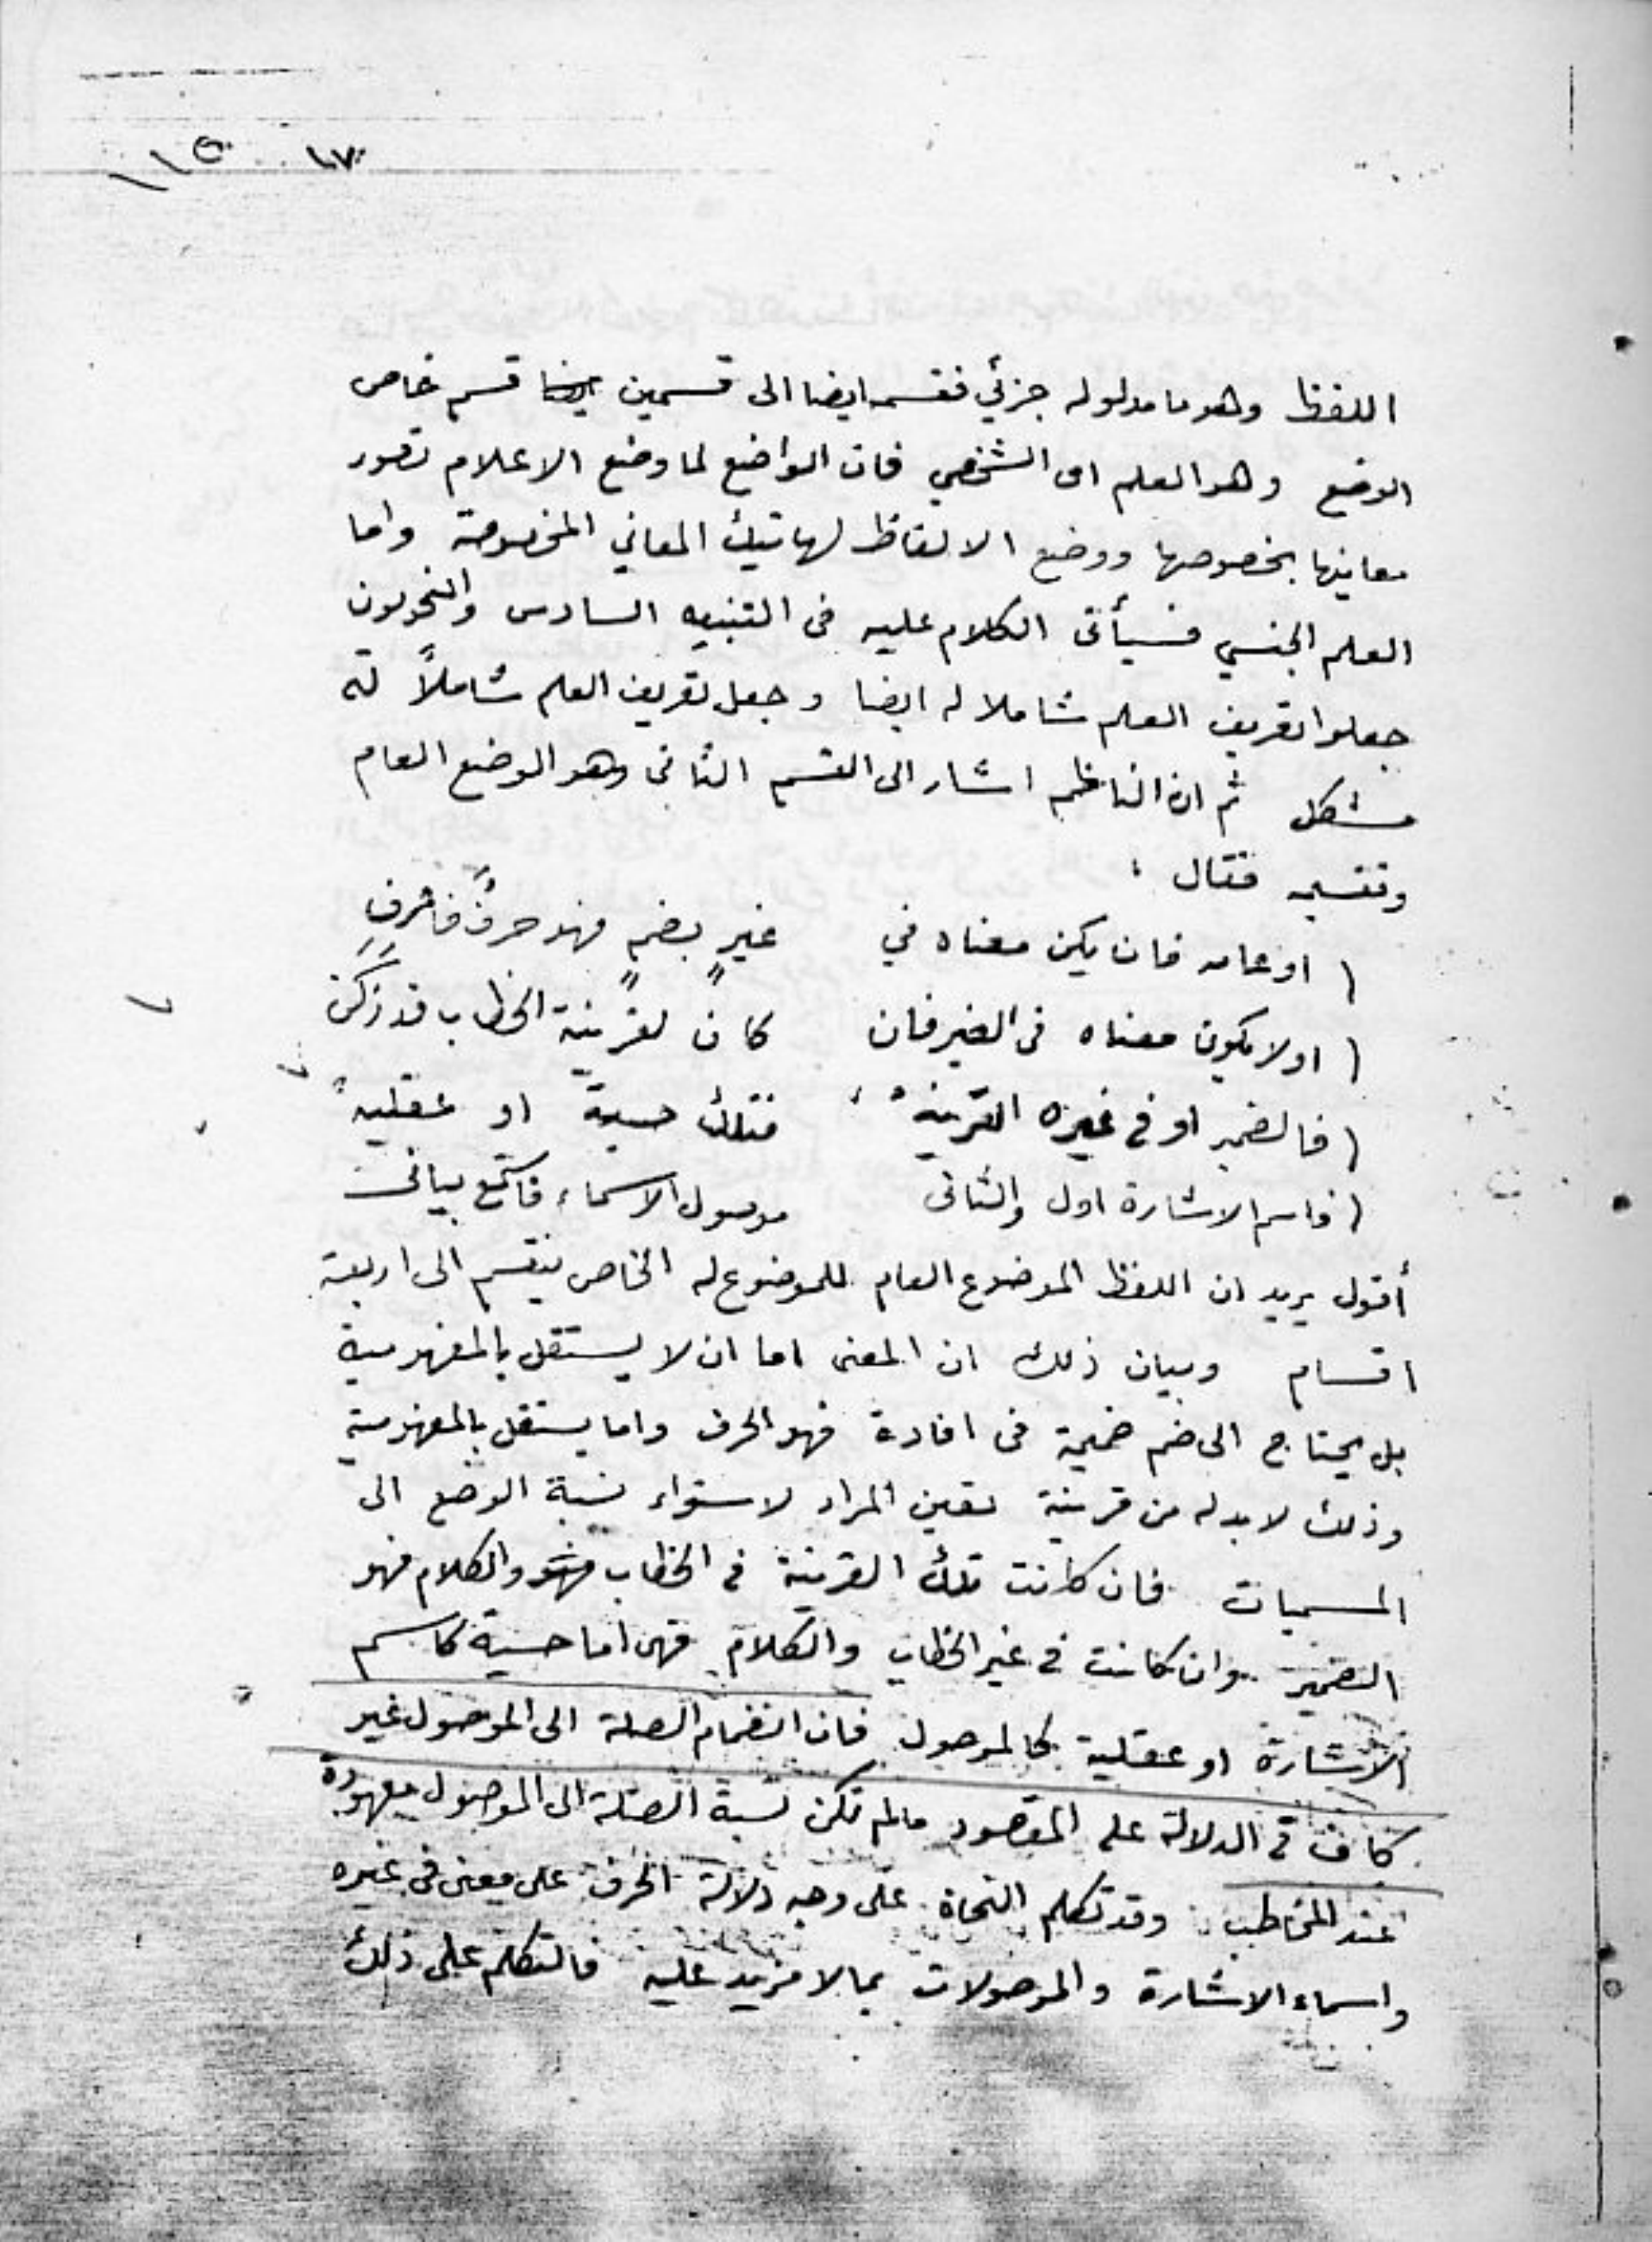 ١٧
اللفظ وهو ما مدلوله جزئي فقسمه ايضا الى قسمين قسم خاص
الوضع وهو العلم اى الشخصي فان الواضع لما وضع الاعلام تصور
معانيها بخصوصها ووضع الالفاظ لهاتيك المعاني المخصوصة واما
العلم الجنسي فسيأتى الكلام عليه فى التنبيه السادس والنحويون
جعلوا تعريف العلم شاملا له ايضا وجعل تعريف العلم شاملاً له
مشكل ثم ان الناظم اشار الى القسم الثانى وهو الوضع العام
وتقسيمه فقال :
او عامه فان يكن معناه في غيرٍ بضمٍ فهو حرفٌ فاعرفِ
او لا يكون معناه فى الغير فان كان لقرينة الخطاب قد زكن
فالضمير او في غيره القرينه فتلك حسية او عقليه
فاسم الاشارة اول والثانى موصول الاسماء فاستمع بيانى
أقول يريد ان اللفظ الموضوع العام للموضوع له الخاص ينقسم الى اربعة
اقسام وبيان ذلك ان المعنى اما ان لا يستقل بالمفهومية
بل يحتاج الى ضم ضميمة فى افادة فهو الحرف واما يستقل بالمفهومية
وذلك لا بد له من قرينة تعين المراد لاستواء نسبة الوضع الى
المسميات فان كانت تلك القرينة فى الخطاب والكلام فهو
الضمير وان كانت فى غير الخطاب والكلام فهى اما حسية كاسم
الاشارة او عقلية كالموصول فان انضمام الصلة الى الموصول غير
كاف فى الدلالة على المقصود مالم تكن نسبة الصلة الى الموصول معهودة
عند المخاطب وقد تكلم النحاة على وجه دلالة الحرف على معنى فى غيره
واسماء الاشارة والموصولات بما لا مزيد عليه فالتكلم على ذلك